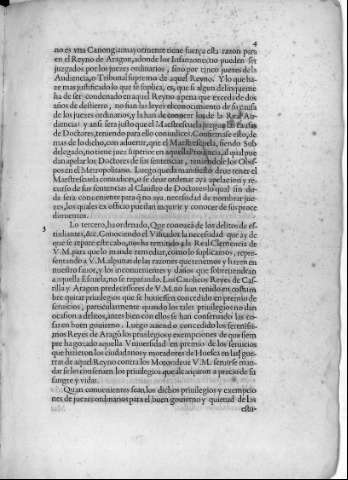 4
no es vna Canongia mayormente tiene fuerça esta razon para
en el Reyno de Aragon, adonde los Infançones no pueden ser
juzgados por los juezes ordinarios, sino por cinco juezes de la
Audiencia, o Tribunal supremo de aquel Reyno. Y lo que ha-
ze mas justificado lo que se suplica, es, que si algun delinquente
ha de ser condenado en aquel Reyno a pena que excede de dos
años de destierro, no fian las leyes el conocimiento de su causa
de los juezes ordinarios, y la han de conocer los de la Real Au-
diencia: y ansi sera justo que el Maestrescuela juzgue las causas
de Doctores, teniendo para ello conjudices. Confirmase esto, de
mas de lo dicho, con aduertir, que el Maestrescuela, siendo Sub
delegado, no tiene juez superior en aquella Prouincia, al qual pue
dan apelar los Doctores de sus sentencias, teniendole los Obis-
pos en el Metropolitano. Luego queda manifiesto deue tener el
Maestrescuela conjudices, o se deue ordenar aya apelacion y re-
curso de sus sentencias al Claustro de Doctores: lo qual sin du-
da sera conueniente para q̃ no aya necessidad de nombrar jue-
zes, los quales ex officio puedan inquirir y conocer de sus proce
dimientos.
3 Lo tercero, ha ordenado, Que conozca de los delitos de es-
tudiantes, &c. Conociendo el Visitador la necessidad que ay de
que se repare este cabo, no ha remitido a la Real Clemencia de
V.M. para que lo mande remediar, como lo suplicamos, repre-
sentando a V.M. algunas de las razones que tenemos y hazen en
nuestro fauor, y los inconuenientes y daños que sobreuendran
a aquella Escuela, no se reparando. Los Catolicos Reyes de Cas-
tilla y Aragon predecessores de V.M. no han tenido en costum
bre quitar priuilegios que se huuiessen concedido en premio de
seruicios, particularmente quando los tales priuilegios no dan
ocasion a delitos, antes bien con ellos se han conseruado las co-
sas en buen gouierno. Luego auiendo concedido los serenissi-
mos Reyes de Aragõ los priuilegios y exempciones de que siem
pre ha gozado aquella Vniuersidad en premio de los seruicios
que hizieron los ciudadanos y moradores de Huesca en las gue-
rras de aquel Reyno contra los Moros: deue V.M. seruirse man
dar se les conseruen los priuilegios que alcançaron a precio de su
sangre y vidas.
Quan conuenientes sean los dichos priuilegios y exempcio
nes de juezes ordinarios para el buen gouierno y quietud de los
estu-